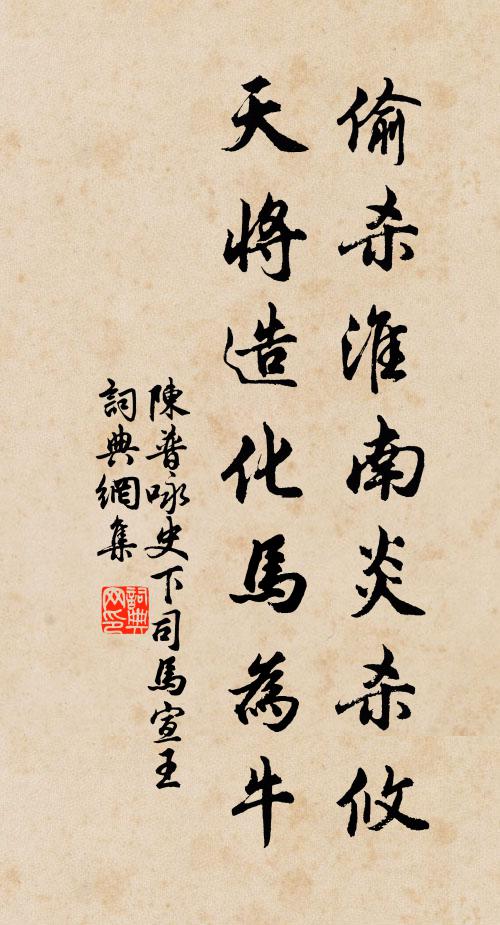 偷杀淮南炎杀攸
天將造化馬為牛
陳普咏史下司馬宣王
詞典網集
詞典网印